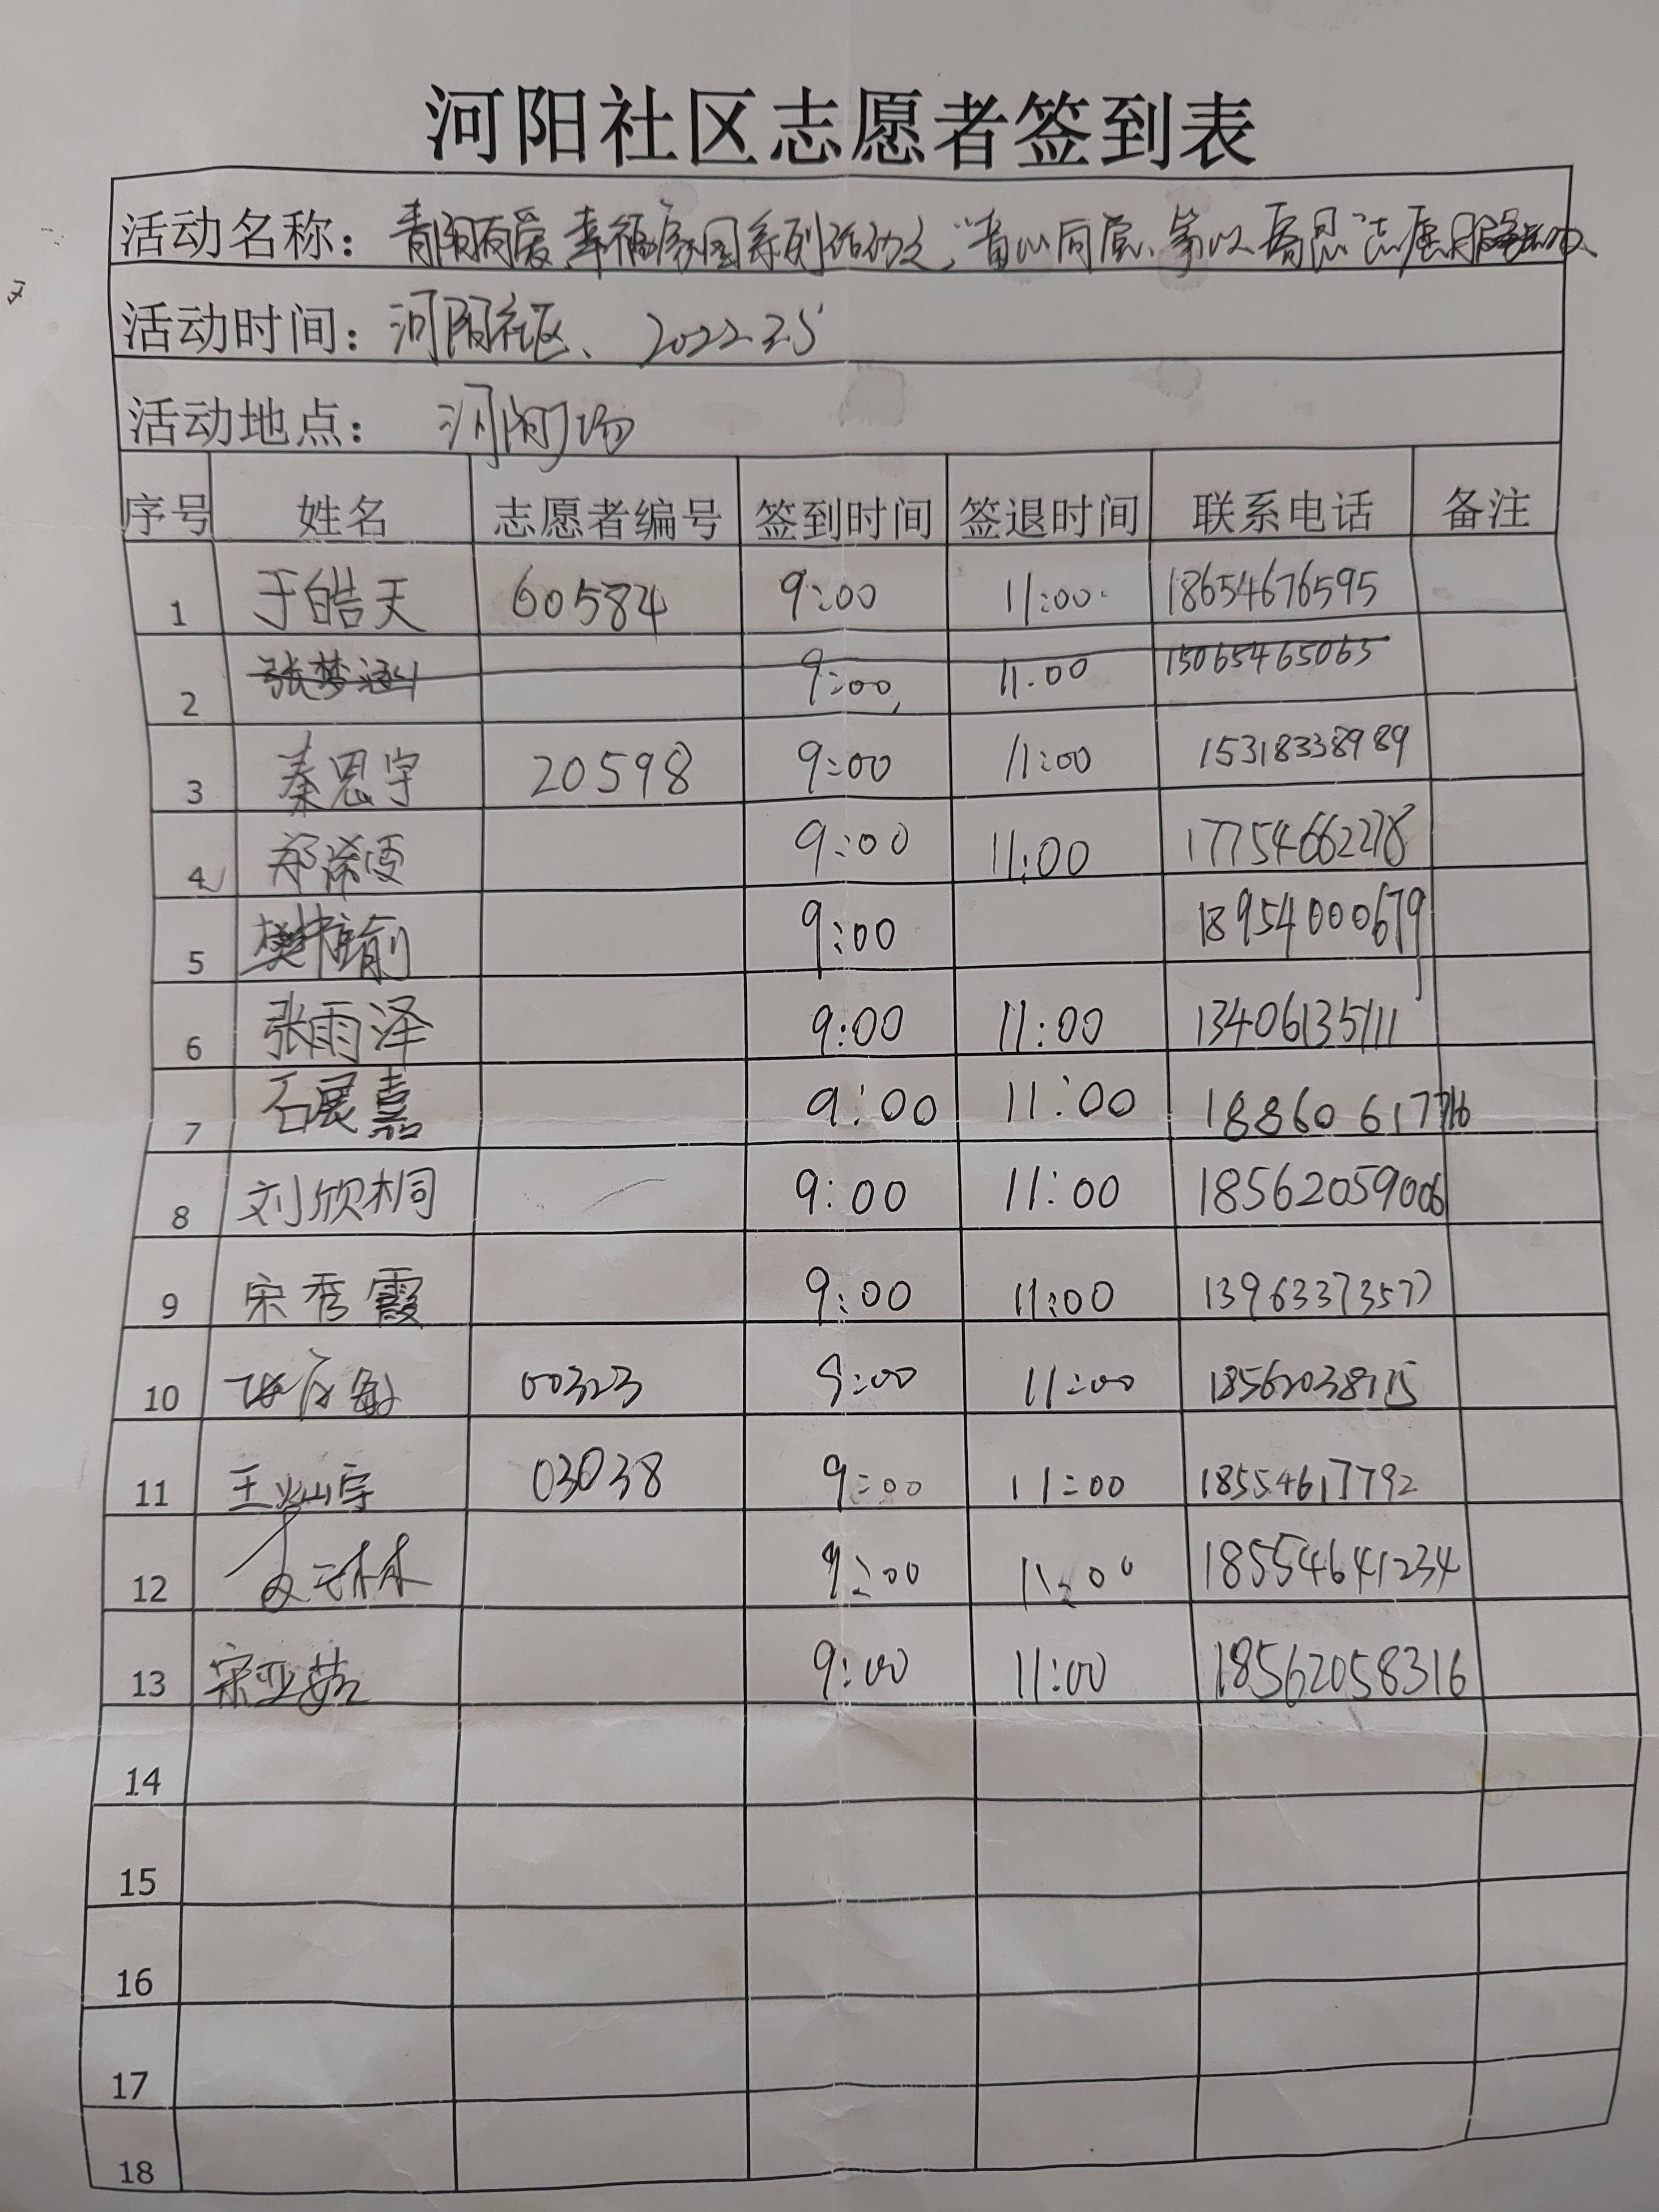 河阳社区志愿者签到表
活动名称：幸福家园系列活动之"童心同 志愿服务活动
活动时间：河阳社区、2022.2.5
活动地点：河阳广场
序号 姓名 志愿者编号 签到时间 签退时间 联系电话 备注
1 于皓天 60584 9:00 11:00 18654676595
2 张梦涵 9:00 11:00 15065465065
3 秦思宇 20598 9:00 11:00 15318338989
4 9:00 11:00 17754662278
5 9:00 18954000679
6 张雨泽 9:00 11:00 13406135111
7 石展嘉 9:00 11:00
8 刘欣桐 9:00 11:00 18562059006
9 宋秀霞 9:00 11:00 13963373577
10 00323 9:00 11:00
11 王灿宇 03038 9:00 11:00 18554617792
12 9:00 11:00 18554641234
13 宋亚茹 9:00 11:00 18562058316
14
15
16
17
18